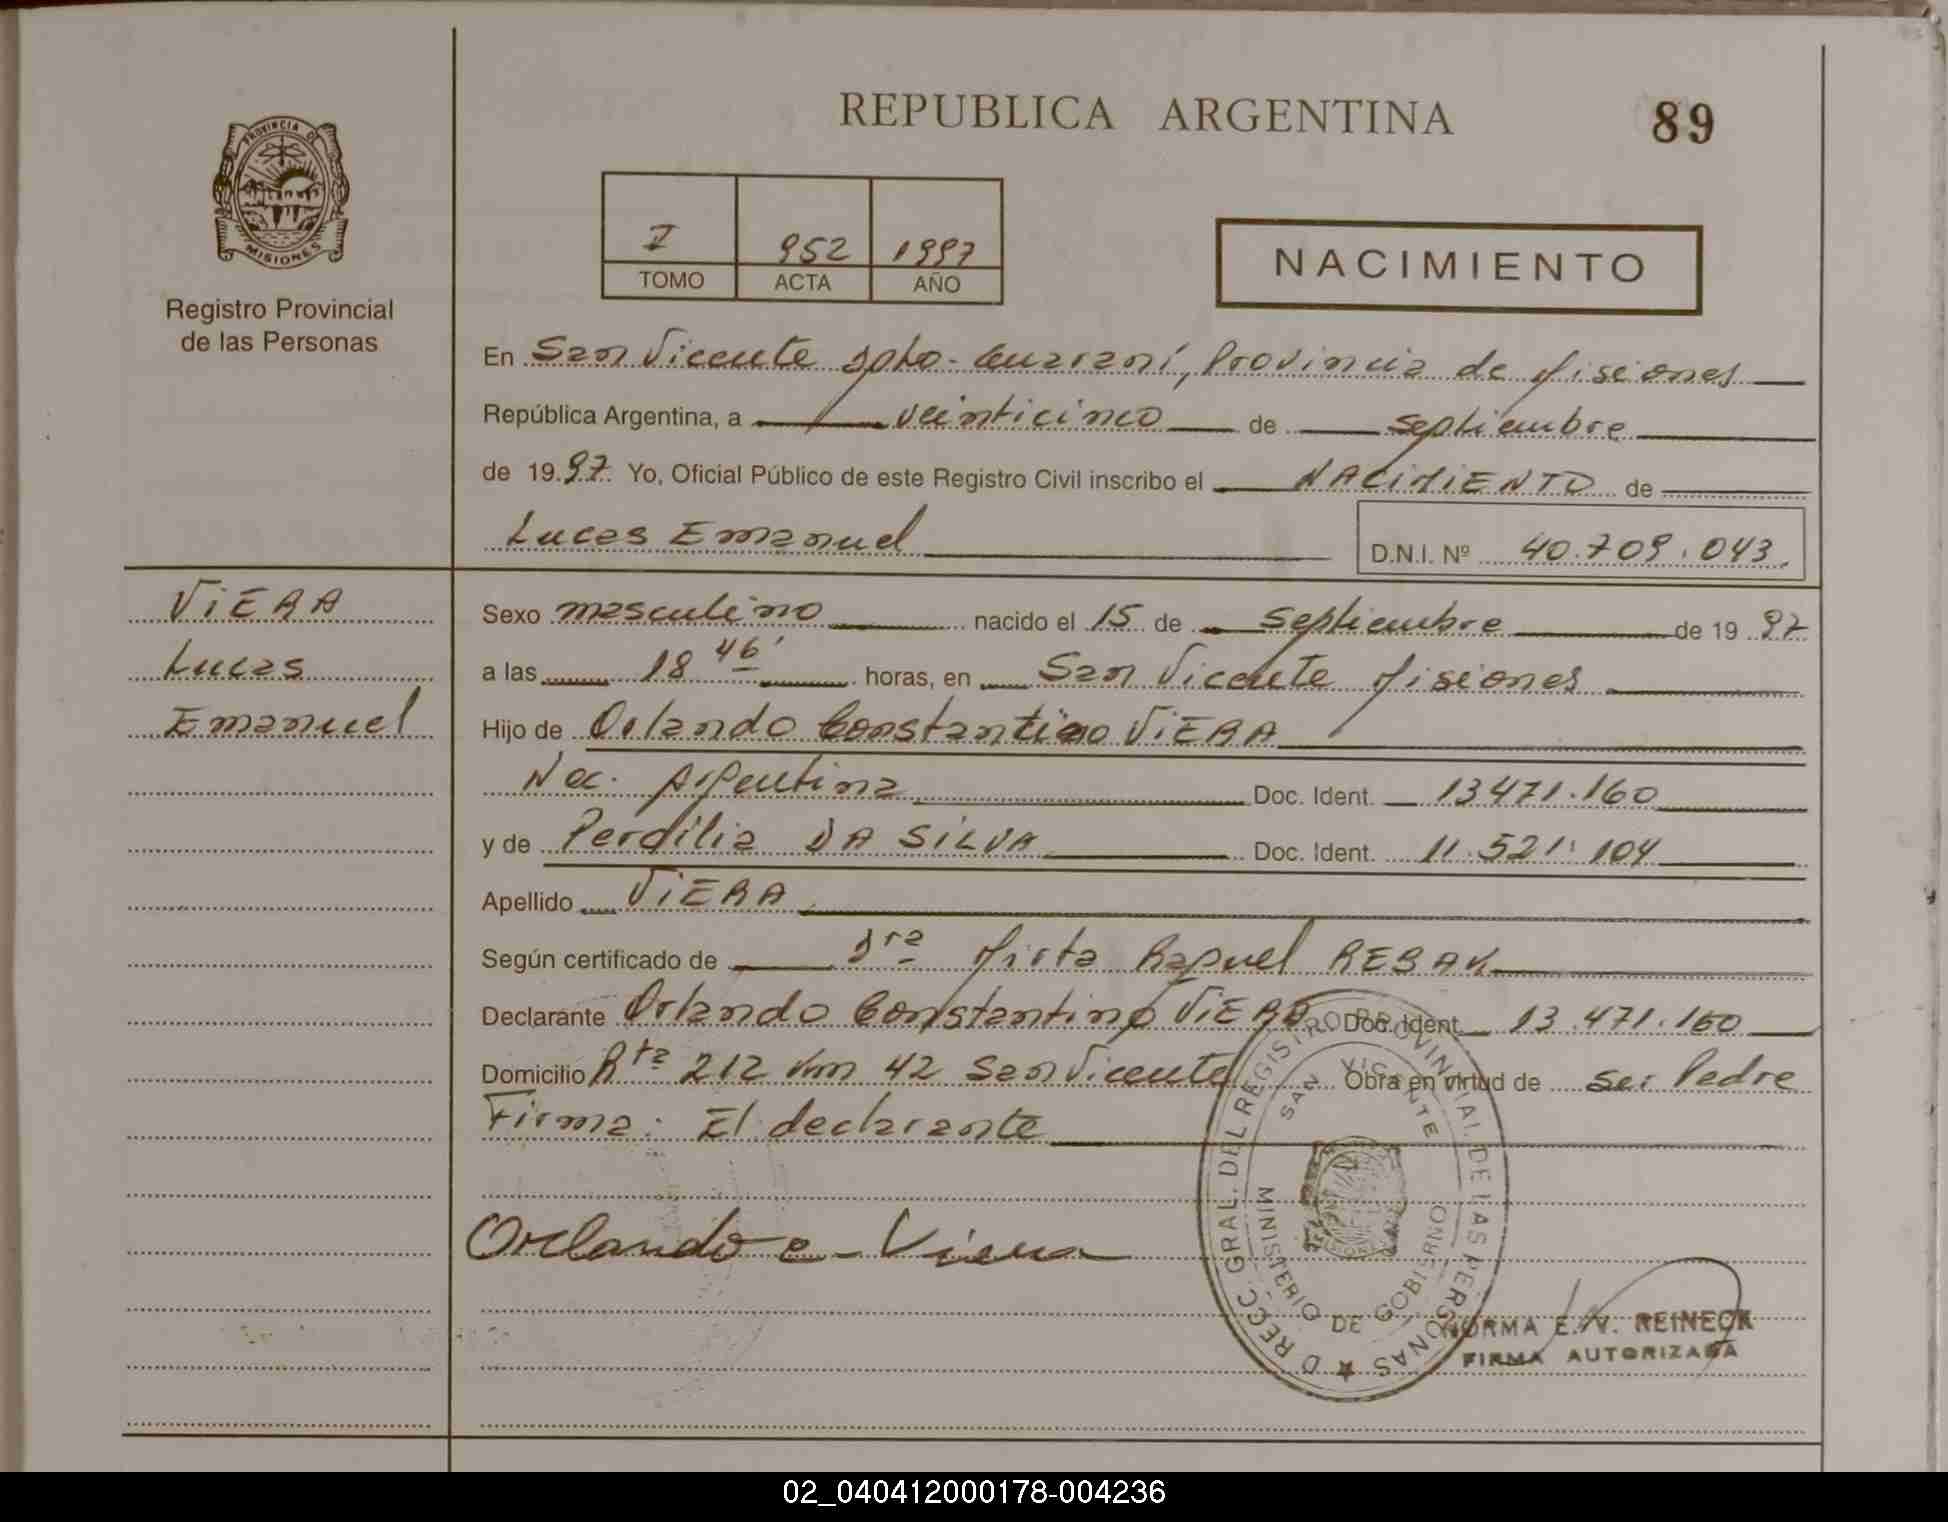 REPUBLICA ARGENTINA
89
PROVINCIA DE
MISIONES
Registro Provincial
de las Personas
I 952 1997
TOMO ACTA AÑO
NACIMIENTO
En San Vicente Dpto. Guaraní, Provincia de Misiones
República Argentina, a veinticinco de septiembre
de 1997 Yo, Oficial Público de este Registro Civil inscribo el NACIMIENTO de
Lucas Emanuel
D.N.I. Nº 40.709.043.
VIERA
Lucas
Emanuel
Sexo masculino nacido el 15 de septiembre de 1997
a las 18 46' horas, en San Vicente Misiones
Hijo de Orlando Constantino VIERA
Nac. Argentina Doc. Ident. 13471.160
y de Perdilia DA SILVA Doc. Ident. 11.521.104
Apellido VIERA
Según certificado de Dra Mirta Raquel
Declarante Orlando Constantino VIERA Doc. Ident. 13.471.160
Domicilio Rta 212 km 42 San Vicente Obra en virtud de ser Padre
Firma: El declarante
Orlando C - Viera
DIRECC. GRAL. DEL REGISTRO PROVINCIAL DE LAS PERSONAS
SAN VICENTE
MINISTERIO DE GOBIERNO
NORMA E. V. REINECK
FIRMA AUTORIZADA
02_040412000178-004236